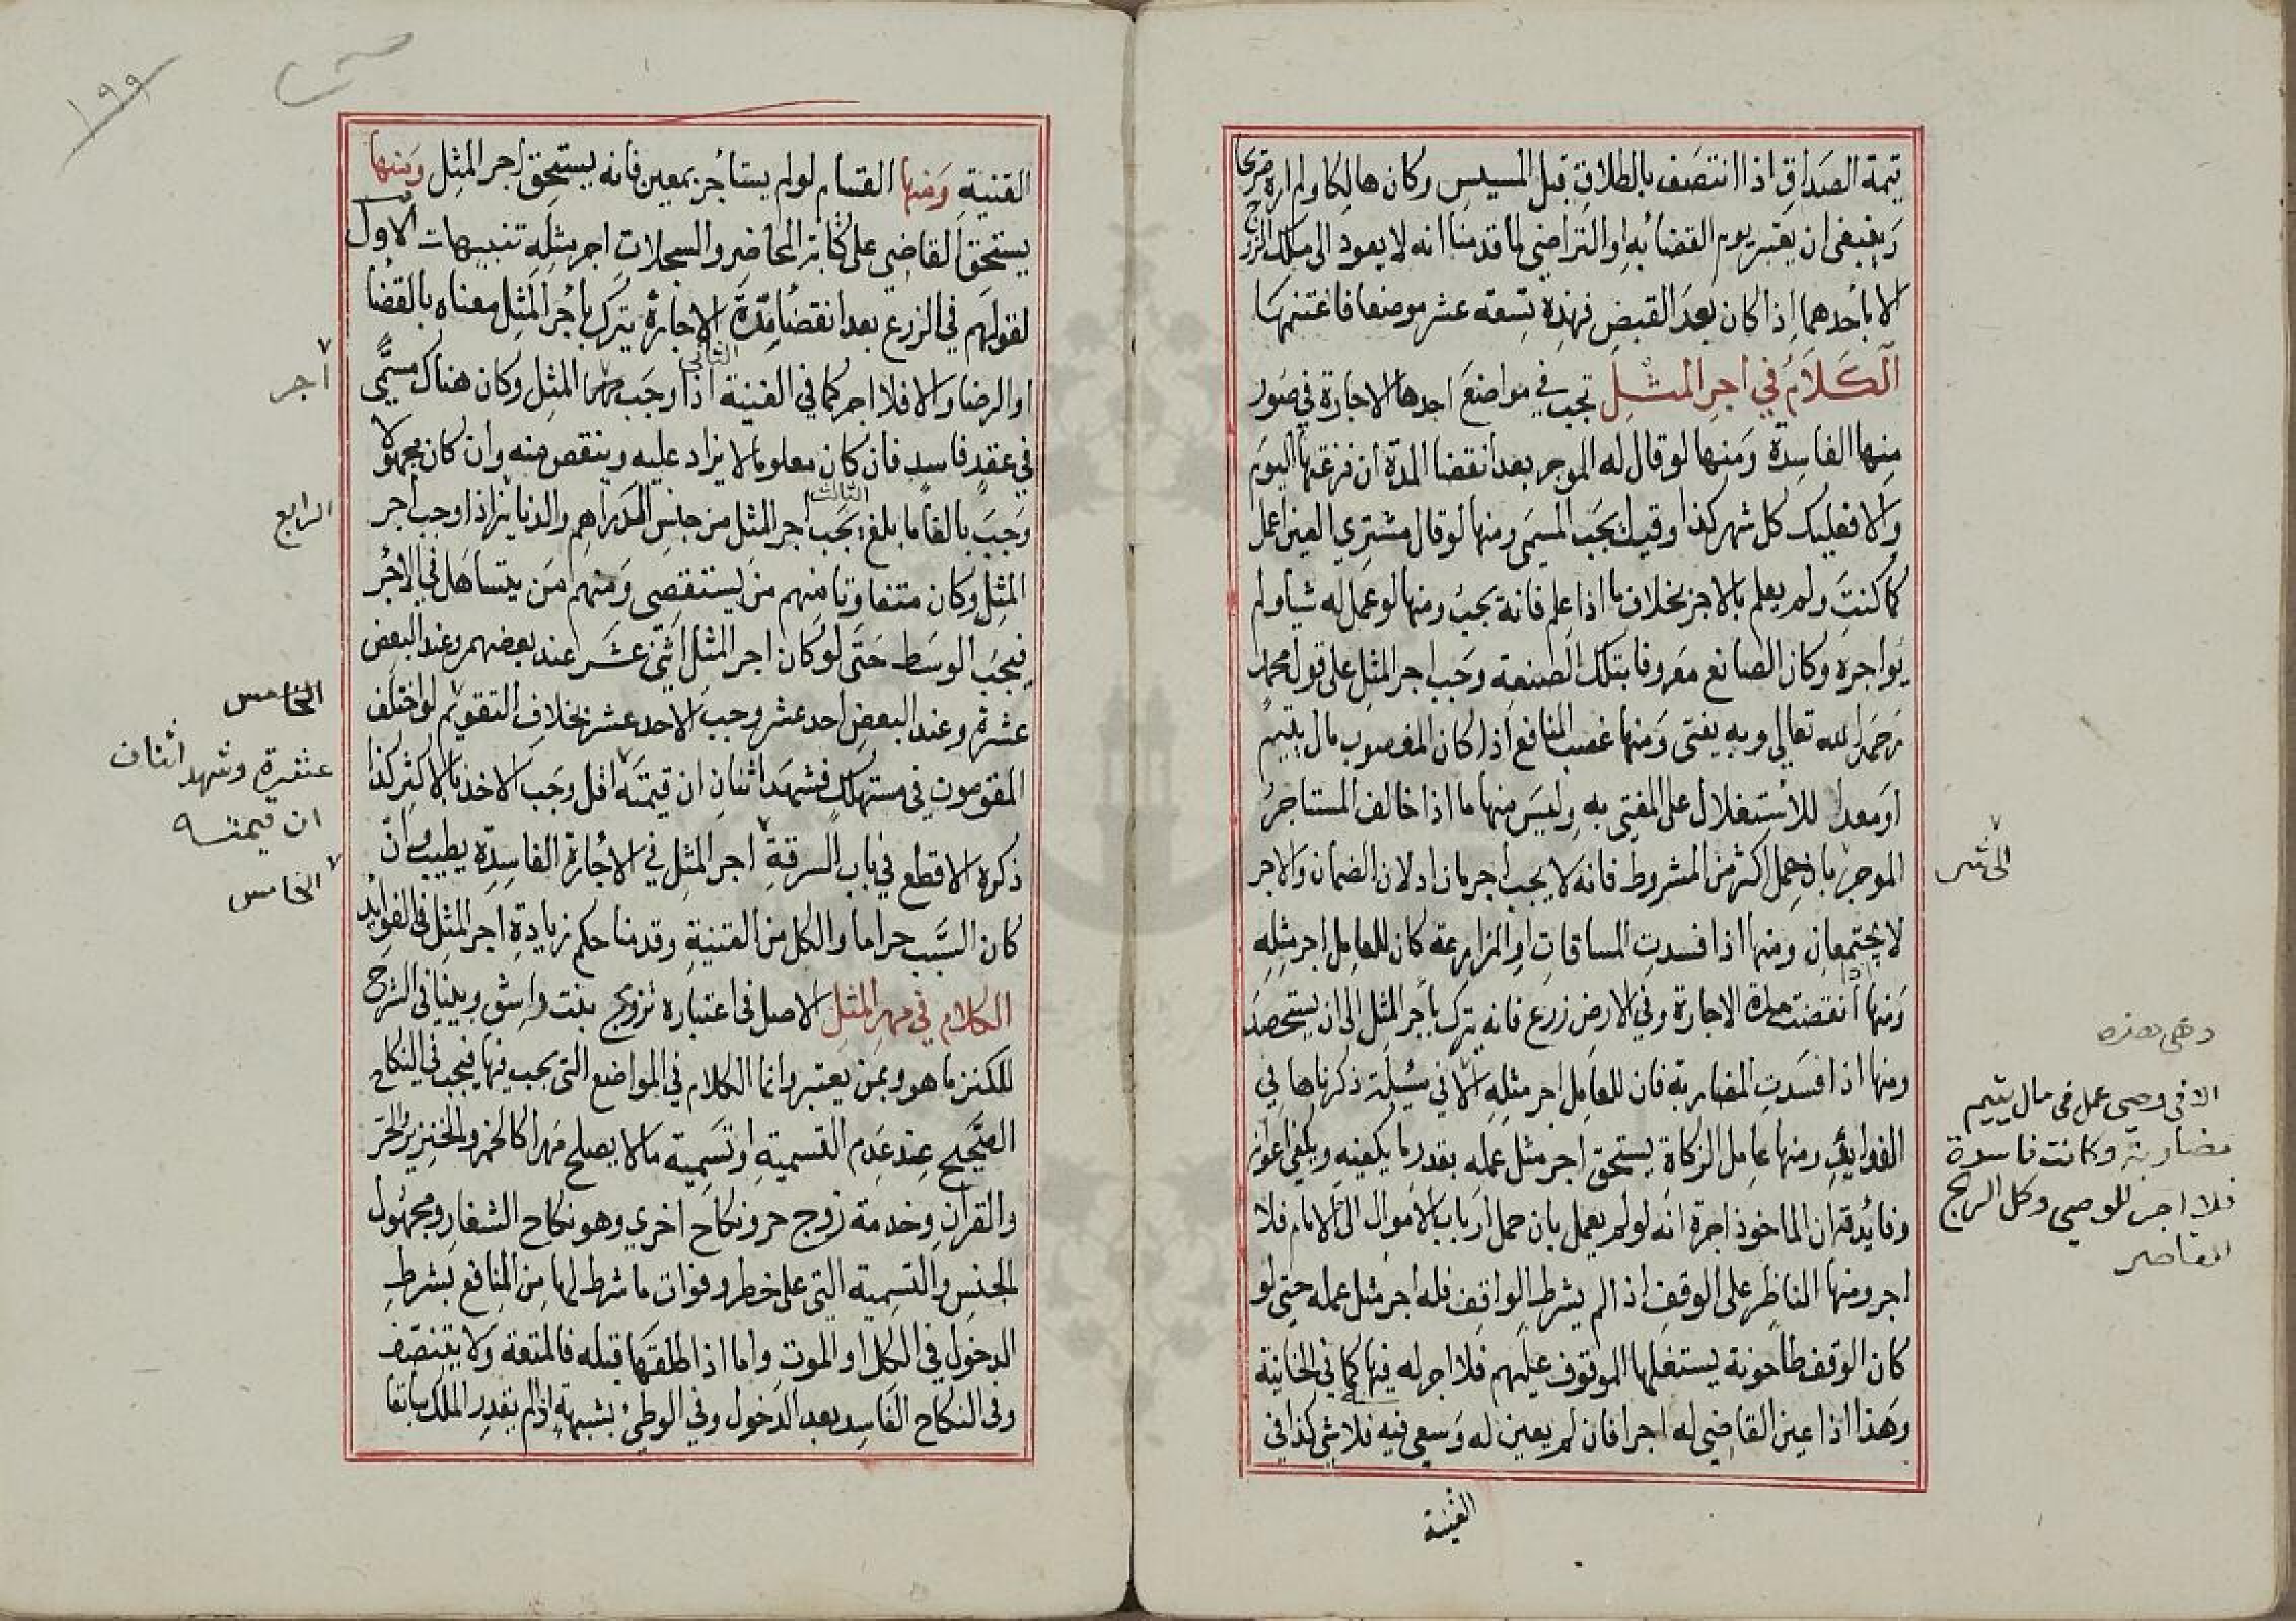 قيمة الصداق اذا انتصف بالطلاق قبل المسيس وكان هالكا ولم اره صريحا
وينبغي ان يعتبر يوم القضا به او التراضي لما قدمنا انه لا يعود الى ملك الزوج
الا بأحدهما اذا كان بعد القبض فهذة تسعة عشر موضعا فاغتنمها
الكلام في اجر المثل تجب في مواضع احدها الاجارة في صور
منها الفاسدة ومنها لو قال له الموجر بعد انقضا المدة ان فرغتها اليوم
والا فعليك كل شهر كذا وقيل يجب المسمى ومنها لو قال مشتري العين اعمل
كما كنت ولم يعلم بالاجر بخلاف ما اذا علم فانه يجب ومنها لو عمل له شيا ولم
يواجره وكان الصانع معروفا بتلك الصنعة وجب اجر المثل على قول محمد
رحمه الله تعالى وبه يفتى ومنها غصب المنافع اذا كان المغصوب مال يتيم
او معدا للاستغلال على المفتى به وليس منها ما اذا خالف المستاجر
الموجر بان حمل اكثر من المشروط فانه لا يجب اجر ما زاد لان الضمان والاجر
لا يجتمعان ومنها اذا فسدت المساقات او المزارعة كان للعامل اجر مثله
ومنها اذا انقضت مدة الاجارة وفي الارض زرع فانه يترك بأجر المثل الى ان يستحصد
ومنها اذا فسدت المضاربة فان للعامل اجر مثله الا في مسئلة ذكرناها في
الفوايد ومنها عامل الزكاة يستحق اجر مثل عمله بقدر ما يكفيه ويكفي اعوانه
وفائدته ان الماخوذ اجرة انه لو لم يعمل بان حمل ارباب الاموال الى الامام فلا
اجر ومنها الناظر على الوقف اذ الم يشرط الواقف فله اجر مثل عمله حتى لو
كان الوقف طاحونة يستغلها الموقوف عليهم فلا اجر له فيها كما في الخانية
وهذا اذا عين القاضي له اجرا فان لم يعين له وسعى فيه فلا شي كذا في
القنية
وهي هذه
الا في وصي عمل في مال يتيم
مضاربة وكانت فاسدة
فلا اجر للوصي وكل الربح
للقاصر
١٩٩
القنية ومنها القسام لو لم يستأجر بمعين فانه يستحق اجر المثل ومنها
يستحق القاضي على كتابة المحاضر والسجلات اجر مثله تنبيهات الاول
لقولهم في الزرع بعد انقضا مدة الاجارة يترك بأجر المثل معناه بالقضا
او الرضا والا فلا اجر كما في القنية الثاني اذا وجب مهر المثل وكان هناك مسمى
في عقد فاسد فان كان معلوما لا يزاد عليه وينقص منه وان كان مجهولا
وجب بالغا ما بلغ الثالث يجب اجر المثل من جنس الدراهم والدنانير اذا وجب اجر
المثل وكان متفاوتا منهم من يستقصي ومنهم من يتساهل في الاجر
فيجب الوسط حتى لو كان اجر المثل اثني عشر عند بعضهم وعند البعض
عشرة وعند البعض احد عشر وجب الاحد عشر بخلاف التقويم لو اختلف
المقومون في مستهلك فشهد اثنان ان قيمته اقل وجب الاخذ بالاكثر كذا
ذكره الاقطع في باب السرقة اجر المثل في الاجارة الفاسدة يطيب وان
كان السبب حراما والكل من القنية وقدمنا حكم زيادة اجر المثل في الفوايد
الكلام في مهر المثل الاصل في اعتباره تزويج بنت واشق وبينا في الشرح
للكنز ما هو وبمن يعتبر وانما الكلام في المواضع التي يجب فيها فيجب في النكاح
الصحيح عند عدم التسمية او تسمية ما لا يصلح مهرا كالخمر والخنزير والحر
والقران وخدمة زوج حر ونكاح اخري وهو نكاح الشغار ومجهول
الجنس والتسمية التي على خطر وفوات ما شرط لها من المنافع بشرط
الدخول في الكل او الموت واما اذا طلقها قبله فالمتعة ولا يتنصف
وفي النكاح الفاسد بعد الدخول وفي الوطئ بشبهة اذ لم يقدر الملك سابقا
اجر
الرابع
الخامس
عشرة وشهد اثنان
ان قيمته
الخامس